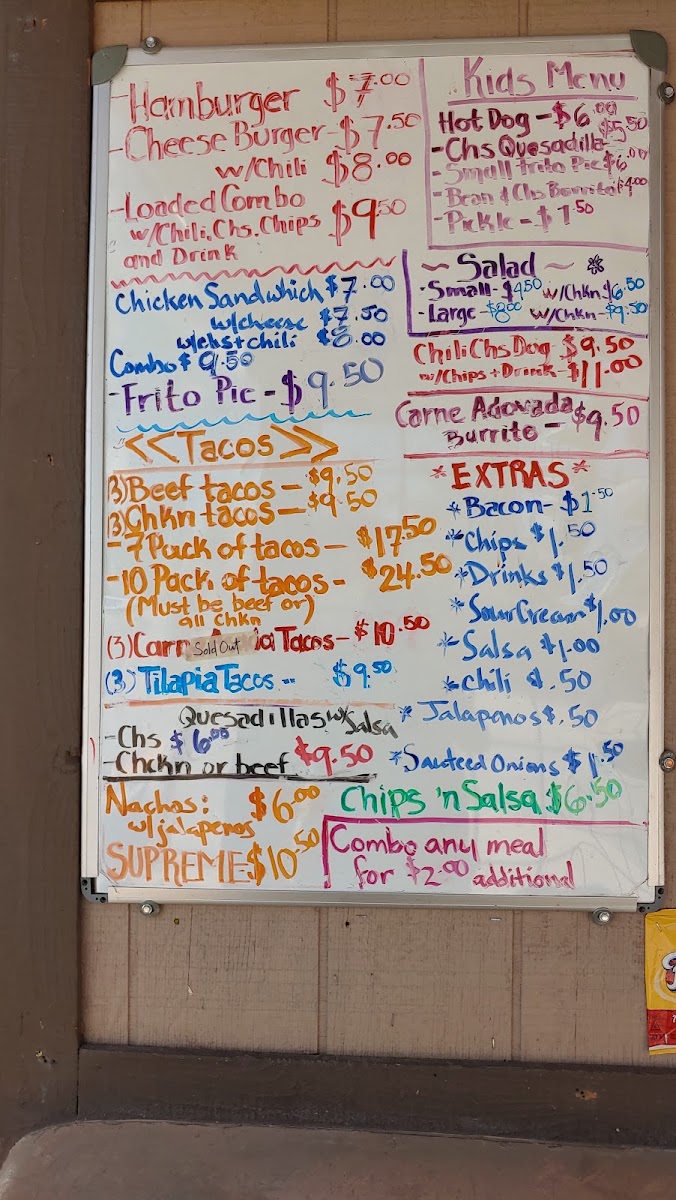 -Hamburger $7.00
-Cheese Burger-$7.50
w/Chili $8.00
-Loaded Combo $9.50
w/Chili, Chs. Chips
and Drink
Chicken Sandwhich $7.00
w/cheese $7.50
w/chs+chili $8.00
Combo $9.50
-Frito Pie-$9.50
<<Tacos>>
(3)Beef tacos-$9.50
(3)Chkn tacos-$9.50
-7 Pack of tacos-$17.50
-10 Pack of tacos-$24.50
(Must be beef or)
all Chkn
(3)Carn Sold Out a Tacos-$10.50
(3) Tilapia Tacos-- $9.50
Quesadillas w/Salsa
-Chs $6.00
-Chckn or beef $9.50
Nachos: $6.00
w/jalapenos
SUPREME $10.50
Kids Menu
Hot Dog-$6.00
-Chs Quesadilla-$5.50
-Small Frito Pie $6.00
-Bean & Chs Burrito $4.00
-Pickle-$1.50
~Salad~ *
·Small-$4.50 w/Chkn $6.50
-Large-$8.00 w/Chkn-$9.50
Chili Chs Dog-$9.50
w/Chips+Drink-$11.00
Carne Adovada $9.50
Burrito-
*EXTRAS*
*Bacon-$1.50
*Chips $1.50
*Drinks $1.50
*Sour Cream $1.00
*Salsa $1.00
*Chili $.50
*Jalapenos $.50
*Sauteed Onions $1.50
Chips 'n Salsa $6.50
Combo any meal
for $2.00 additional